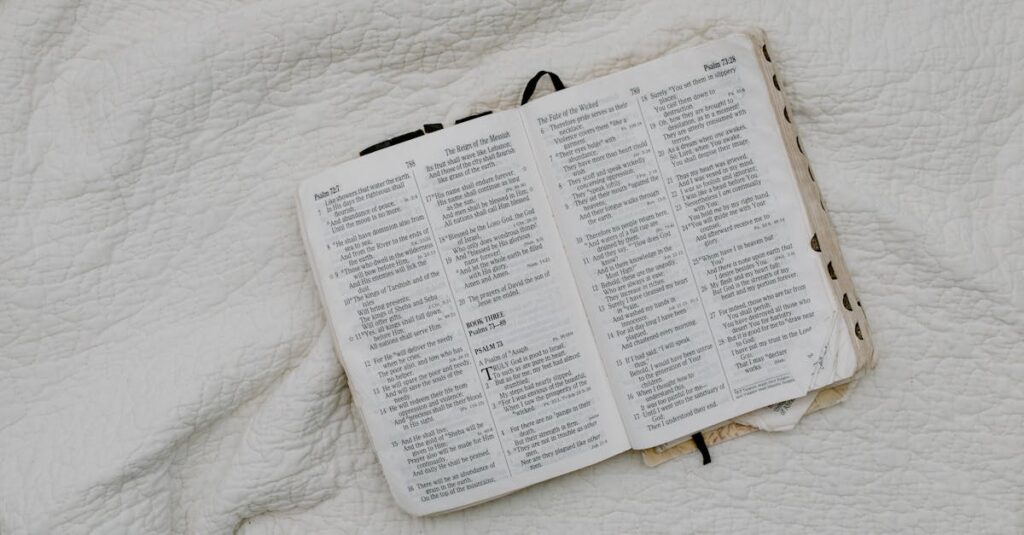 Psalm 72:7
788
The Reign of the Messiah
Like showers that water the earth.
7 In His days the righteous shall
flourish,
And abundance of peace,
Until the moon is no more.
8 He shall have dominion also from
sea to sea,
And from the River to the ends of
the earth.
9 Those who dwell in the wilderness
will bow before Him,
And His enemies will lick the
dust.
10 The kings of Tarshish and of the
isles
Will bring presents;
The kings of Sheba and Seba
Will offer gifts.
11 Yes, all kings shall fall down
before Him;
All nations shall serve Him.
12 For He will deliver the needy
when he cries,
The poor also, and him who has
no helper.
13 He will spare the poor and needy,
And will save the souls of the
needy.
14 He will redeem their life from
oppression and violence;
And precious shall be their blood
in His sight.
15 And He shall live;
And the gold of Sheba will be
given to Him;
Prayer also will be made for Him
continually,
And daily He shall be praised.
16 There will be an abundance of
grain in the earth,
On the top of the mountains;
Its fruit shall wave like Lebanon;
And those of the city shall flourish
like grass of the earth.
17 His name shall endure forever;
His name shall continue as long
as the sun.
And men shall be blessed in Him;
All nations shall call Him blessed.
18 Blessed be the LORD God, the God
of Israel,
Who only does wondrous things!
19 And blessed be His glorious
name forever!
And let the whole earth be filled
with His glory.
Amen and Amen.
20 The prayers of David the son of
Jesse are ended.
BOOK THREE
Psalms 73—89
PSALM 73
A Psalm of Asaph.
TRULY God is good to Israel,
To such as are pure in heart.
2 But as for me, my feet had almost
stumbled;
My steps had nearly slipped.
3 For I was envious of the boastful,
When I saw the prosperity of the
wicked.
4 For there are no pangs in their
death,
But their strength is firm.
5 They are not in trouble as other
men,
Nor are they plagued like other
men.
The Fate of the Wicked
789
Psalm 73:28
6 Therefore pride serves as their
necklace;
Violence covers them like a
garment.
7 Their eyes bulge with
abundance;
They have more than heart could
wish.
8 They scoff and speak wickedly
concerning oppression;
They speak loftily.
9 They set their mouth against the
heavens,
And their tongue walks through
the earth.
10 Therefore his people return here,
And waters of a full cup are
drained by them.
11 And they say, "How does God
know?
And is there knowledge in the
Most High?"
12 Behold, these are the ungodly,
Who are always at ease;
They increase in riches.
13 Surely I have cleansed my heart
in vain,
And washed my hands in
innocence.
14 For all day long I have been
plagued,
And chastened every morning.
15 If I had said, "I will speak
thus,"
Behold, I would have been untrue
to the generation of Your
children.
16 When I thought how to
understand this,
It was too painful for me—
17 Until I went into the sanctuary of
God;
Then I understood their end.
18 Surely You set them in slippery
places;
You cast them down to
destruction.
19 Oh, how they are brought to
desolation, as in a moment!
They are utterly consumed with
terrors.
20 As a dream when one awakes,
So, Lord, when You awake,
You shall despise their image.
21 Thus my heart was grieved,
And I was vexed in my mind.
22 I was so foolish and ignorant;
I was like a beast before You.
23 Nevertheless I am continually
with You;
You hold me by my right hand.
24 You will guide me with Your
counsel,
And afterward receive me to
glory.
25 Whom have I in heaven but
You?
And there is none upon earth that
I desire besides You.
26 My flesh and my heart fail;
But God is the strength of my
heart and my portion forever.
27 For indeed, those who are far from
You shall perish;
You have destroyed all those who
desert You for harlotry.
28 But it is good for me to draw near
to God;
I have put my trust in the Lord
GOD,
That I may declare all Your
works.